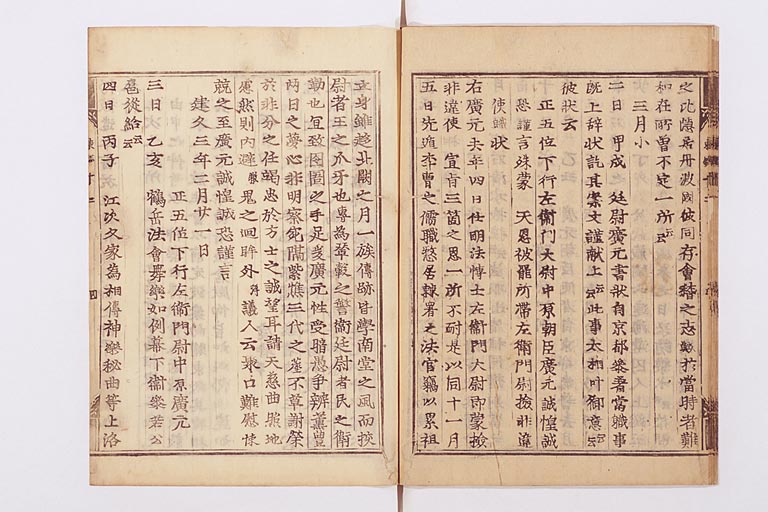 之比隱居丹波國彼同存會稽之志歟於當時者難
知在所曾不定一所云云
三月小
二日 甲戌 廷尉廣元書狀自京都參着當職事
既上辞狀訖其案文謹獻上云云此事太相叶御意云云
彼狀云云
正五位下行左衛門大尉中原朝臣廣元誠惶誠
恐謹言殊蒙 天恩被罷所帶左衛門尉撿非違
使職狀
右廣元去年四日任明法博士左衛門大尉即蒙撿
非違使 宣旨三箇之恩一所不耐是以同十一月
五日先遁李曹之儒職愁居隸署之法官竊以累祖
立身雖趍北闕之月一族傳跡皆學南堂之風而挾
尉者王之爪牙也專為輦轂之警衛廷尉者民之銜
勒也宜致囹圄之手足爰廣元性受暗愚爭辨薫豊
两日之夢心非明察鈍隔紫燋三代之蓬不草謝榮
於非分之任竭忠於方士之誠望耳請天慈曲照地
慮然則内避鬼之回眸外議人云衆口難慰悚
兢之至廣元誠惶誠恐謹言
建久三年二月廿一日
正五位下行左衛門尉中原廣元
三日 乙亥 鶴岳法會舞樂如例幕下御參若公
扈從給云云
四日 丙子 江次久家為相傳神樂秘曲等上洛